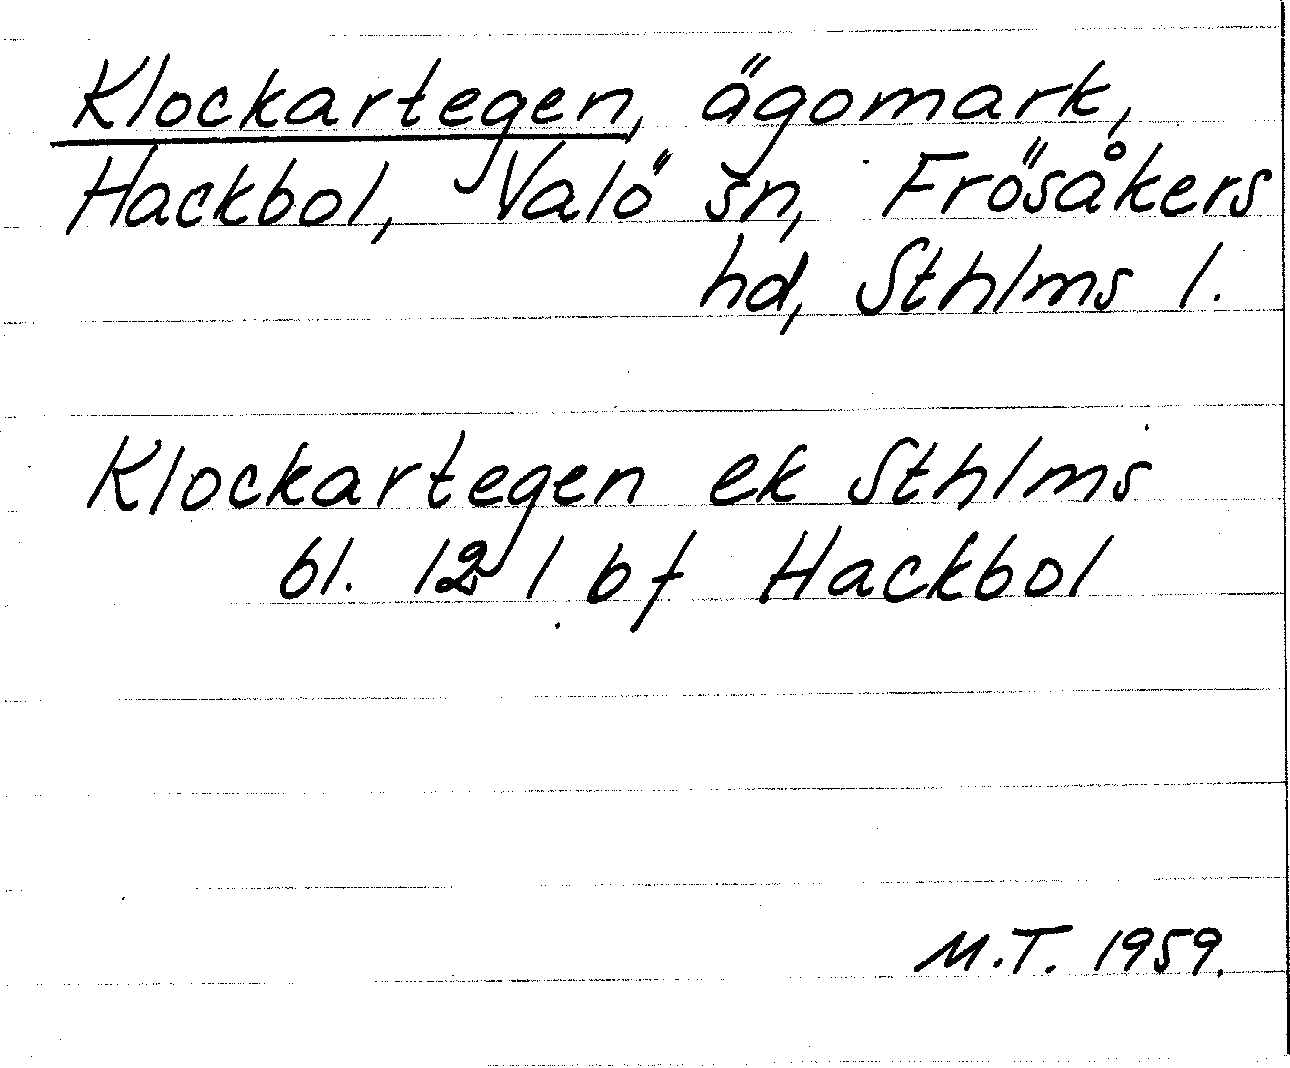 Klockartegen, ägomark,
Hackbol, Valö sn, Frösåkers
hd, Sthlms l.
Klockartegen ek Sthlms
bl. 121 bf Hackbol
M.T. 1959.